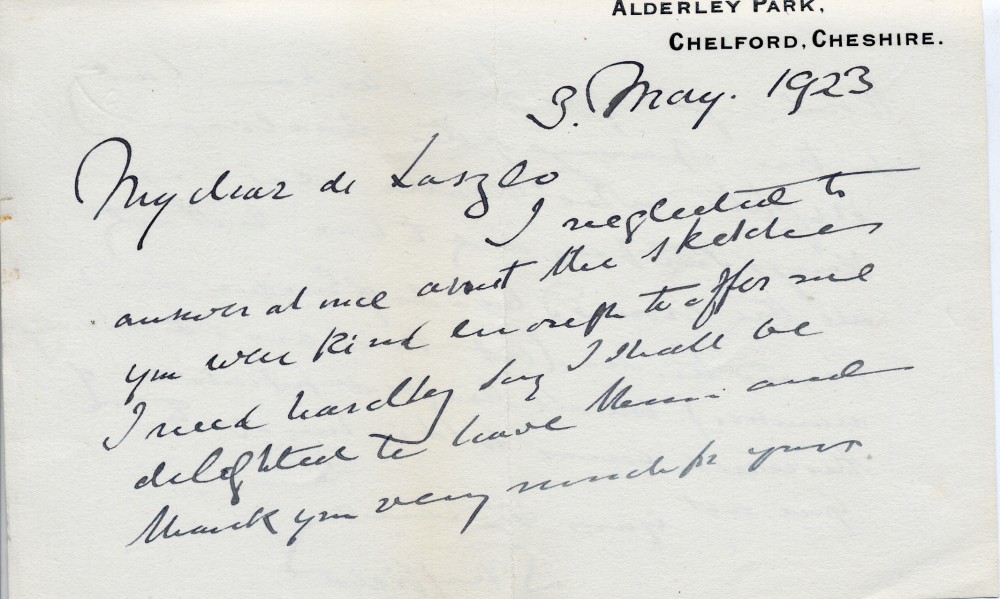 ALDERLEY PARK,
CHELFORD, CHESHIRE.
3. May. 1923
My dear de Laszlo
I neglected to
answer at once about the sketches
you were kind enough to offer me
I need hardly say I shall be
delighted to have them and
thank you very much for yours.